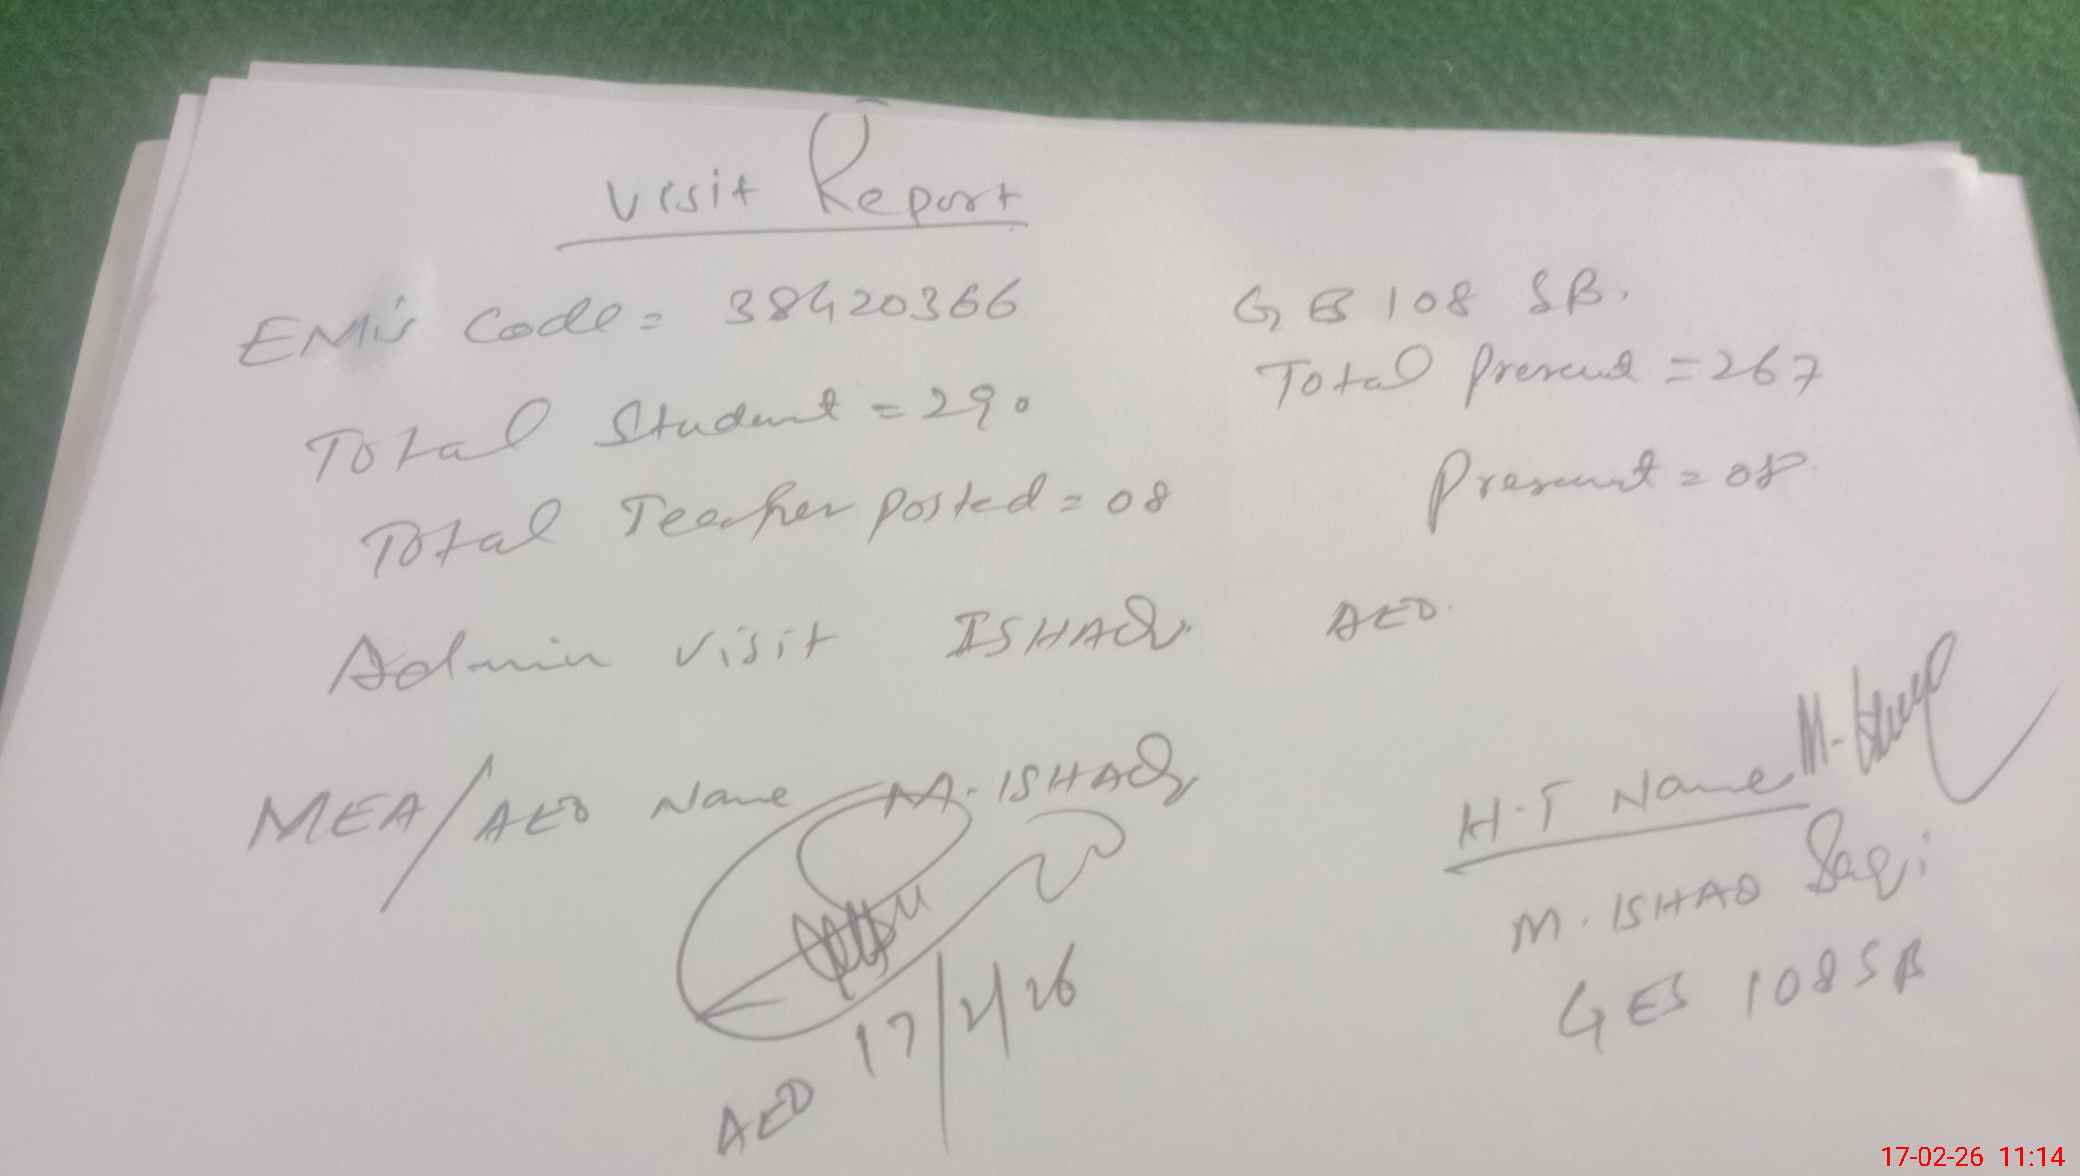 Visit Report
EMIS Code = 38420366 GES 108 SB.
Total Student = 290 Total Present = 267
Total Teacher Posted = 08 Present = 08
Admin visit ISHAQ. AEO.
MEA/AEO Name M. ISHAQ
H.T Name
M. ISHAQ Saqi
GES 108 SB
17/2/26
AEO
17-02-26 11:14